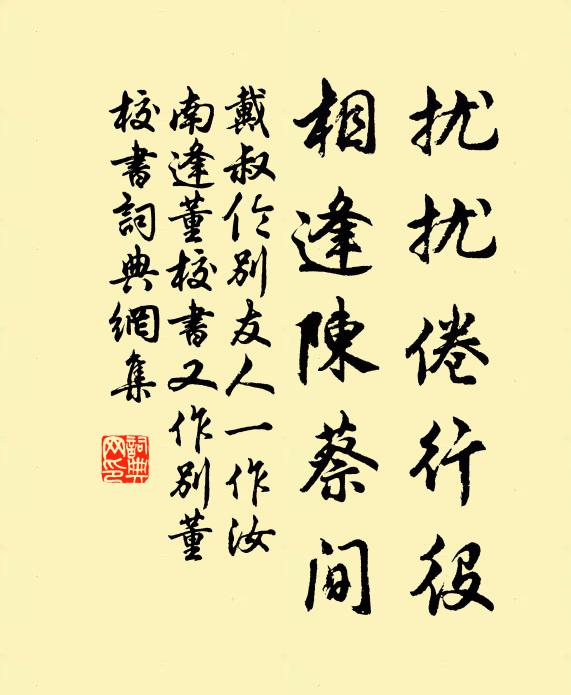 扰扰倦行役
相逢陳蔡間
戴叔伦别友人一作汝
南逢董校書又作别董
校書詞典網集
詞典网印